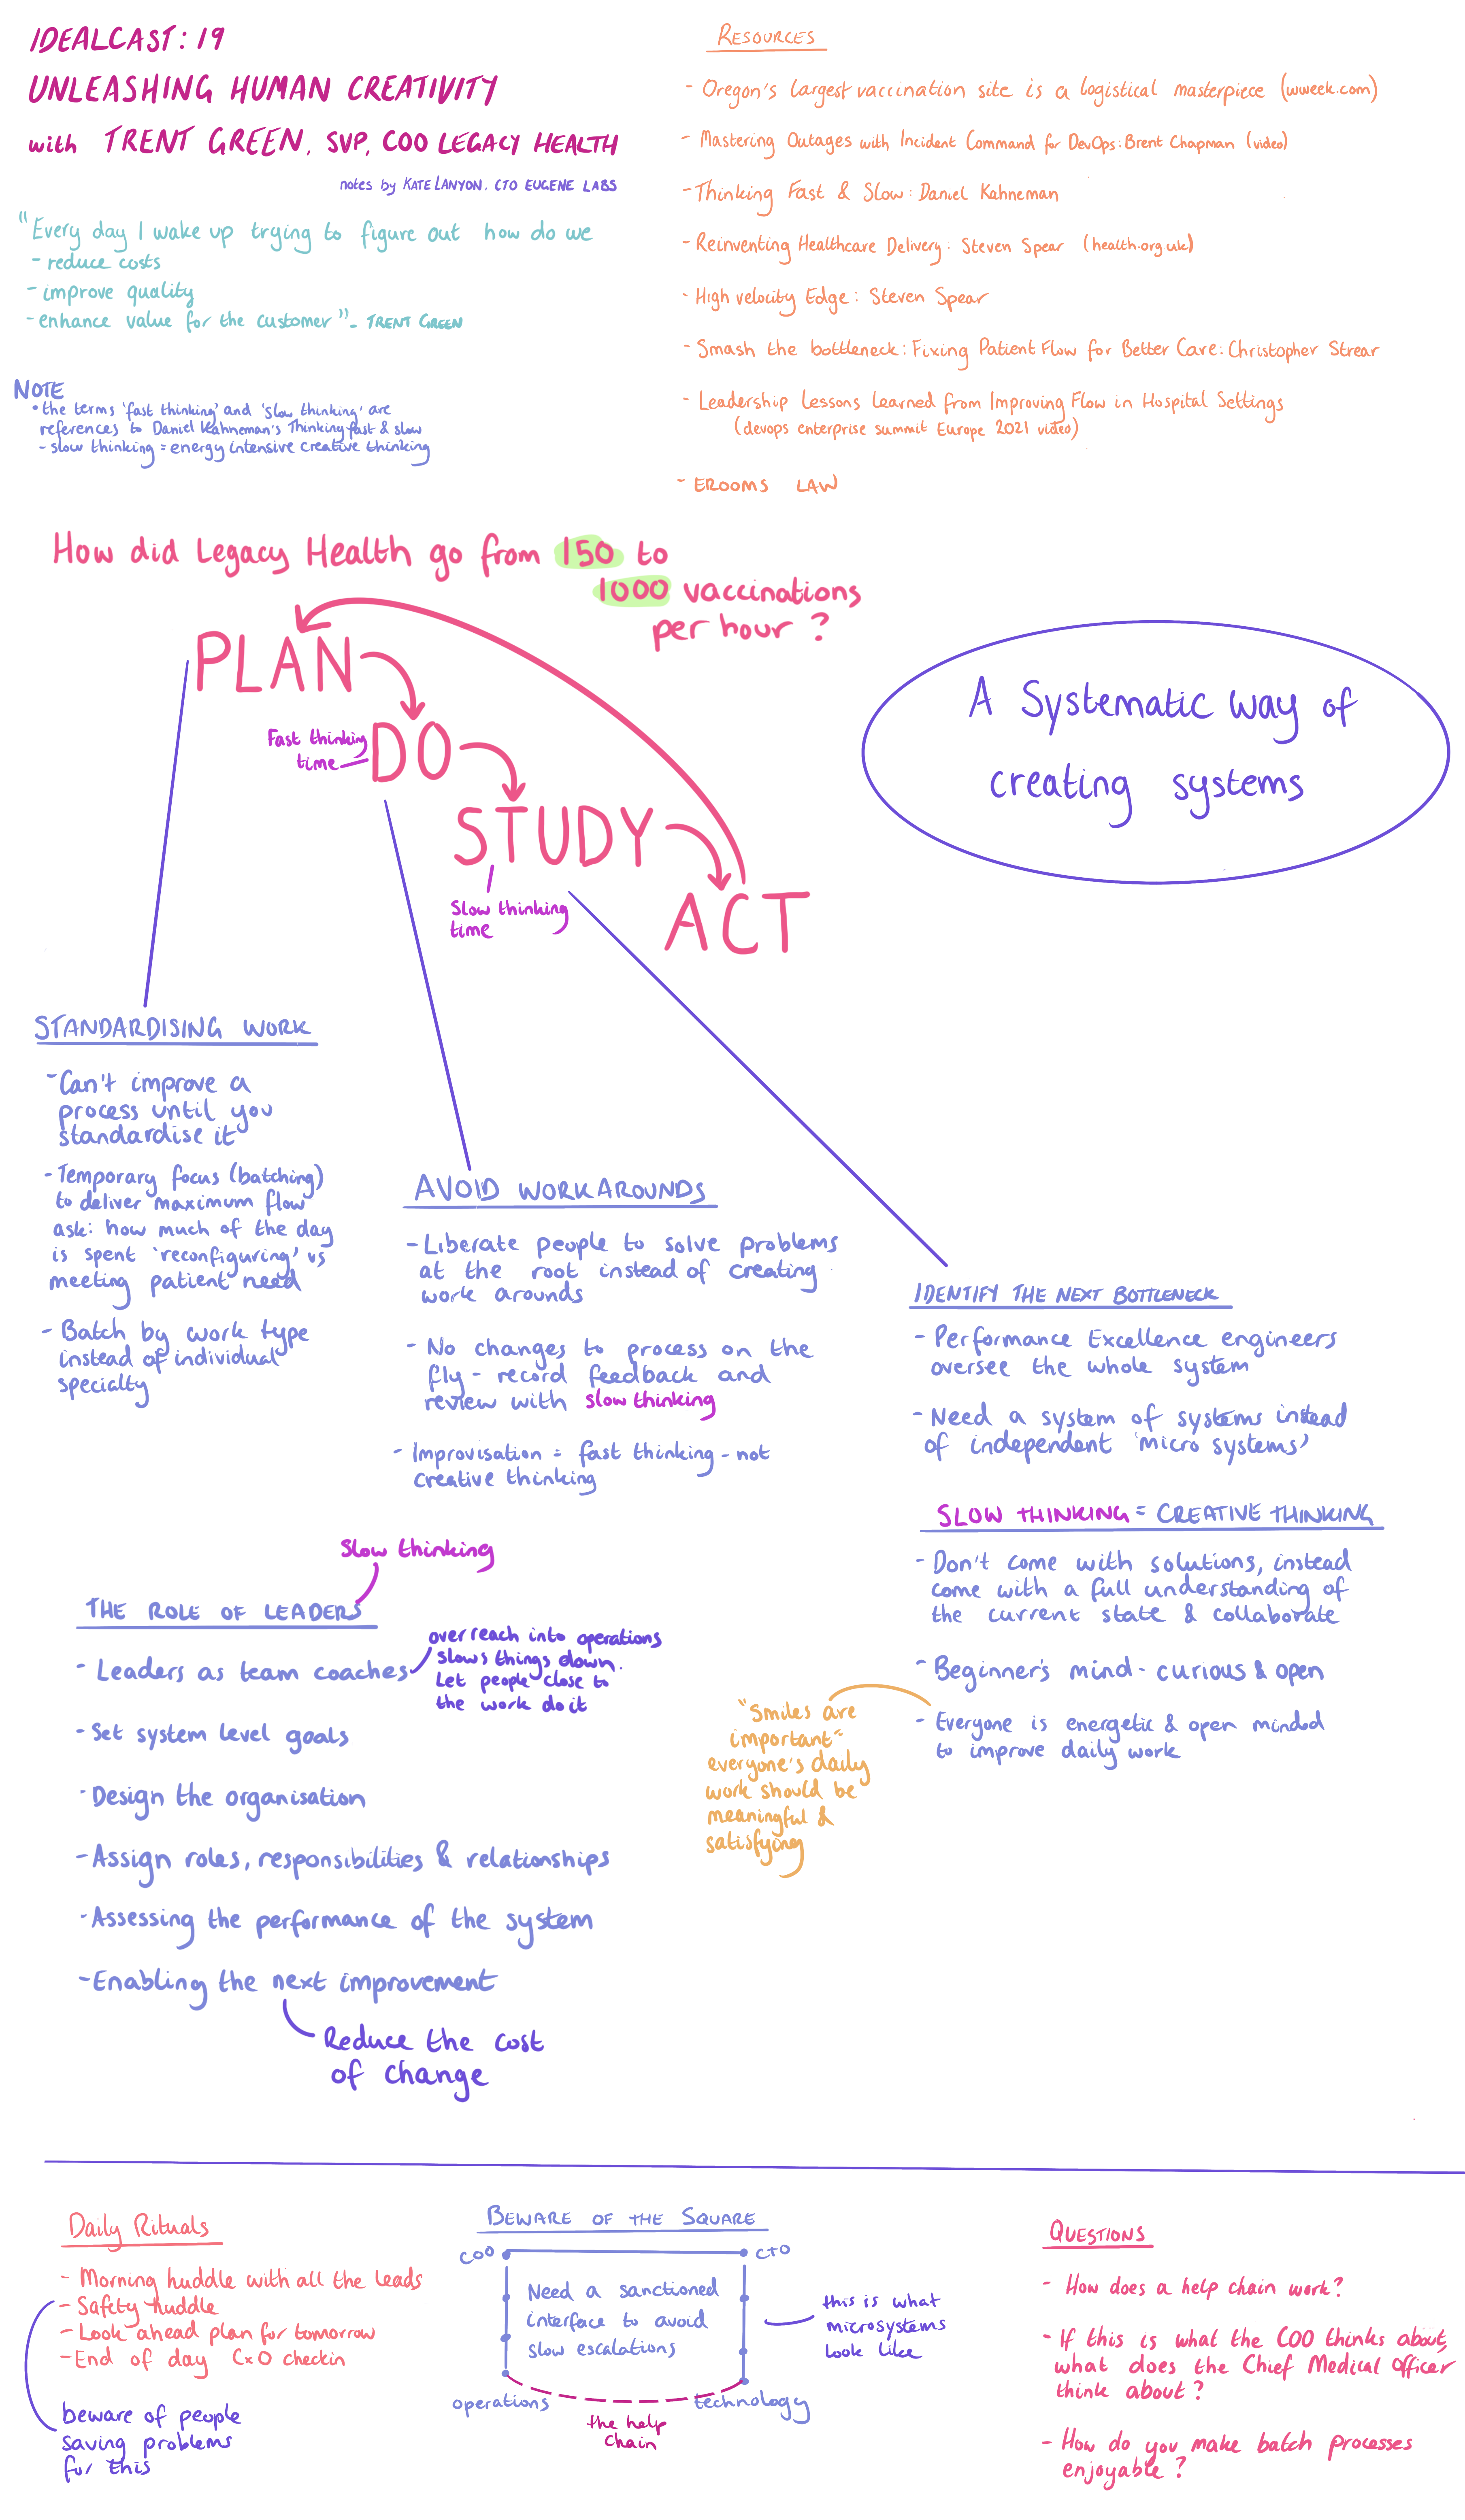 IDEALCAST: 19
UNLEASHING HUMAN CREATIVITY
with TRENT GREEN, SVP, COO LEGACY HEALTH
notes by KATE LANYON, CTO EUGENE LABS
"Every day I wake up trying to figure out how do we
- reduce costs
- improve quality
- enhance value for the customer" - TRENT GREEN
NOTE
• the terms 'fast thinking' and 'slow thinking' are
references to Daniel Kahneman's Thinking fast & slow
- slow thinking = energy intensive creative thinking
RESOURCES
- Oregon's largest vaccination site is a logistical masterpiece (wweek.com)
- Mastering Outages with Incident Command for DevOps: Brent Chapman (video)
- Thinking Fast & Slow: Daniel Kahneman
- Reinventing Healthcare Delivery: Steven Spear (health.org.uk)
- High velocity Edge: Steven Spear
- Smash the bottleneck: Fixing Patient Flow for Better Care: Christopher Strear
- Leadership Lessons Learned from Improving Flow in Hospital Settings
(devops enterprise summit Europe 2021 video)
- EROOMS LAW
How did Legacy Health go from 150 to
1000 vaccinations
per hour?
PLAN
Fast thinking
time
DO
STUDY
Slow thinking
time
ACT
A Systematic way of
creating systems
STANDARDISING WORK
- Can't improve a
process until you
standardise it
- Temporary focus (batching)
to deliver maximum flow
ask: how much of the day
is spent 'reconfiguring' vs
meeting patient need
- Batch by work type
instead of individual
specialty
AVOID WORKAROUNDS
- Liberate people to solve problems
at the root instead of creating
work arounds
- No changes to process on the
fly - record feedback and
review with slow thinking
- Improvisation = fast thinking - not
creative thinking
IDENTIFY THE NEXT BOTTLENECK
- Performance Excellence engineers
oversee the whole system
- Need a system of systems instead
of independent 'micro systems'
SLOW THINKING = CREATIVE THINKING
- Don't come with solutions, instead
come with a full understanding of
the current state & collaborate
- Beginner's mind - curious & open
- Everyone is energetic & open minded
to improve daily work
"Smiles are
important"
everyone's daily
work should be
meaningful &
satisfying
Slow thinking
THE ROLE OF LEADERS
- Leaders as team coaches
over reach into operations
slows things down.
Let people close to
the work do it
- Set system level goals
- Design the organisation
- Assign roles, responsibilities & relationships
- Assessing the performance of the system
- Enabling the next improvement
Reduce the cost
of change
Daily Rituals
- Morning huddle with all the leads
- Safety huddle
- Look ahead plan for tomorrow
- End of day CxO checkin
beware of people
saving problems
for this
BEWARE OF THE SQUARE
COO
CTO
Need a sanctioned
interface to avoid
slow escalations
operations
technology
the help
chain
this is what
microsystems
look like
QUESTIONS
- How does a help chain work?
- If this is what the COO thinks about,
what does the Chief Medical Officer
think about?
- How do you make batch processes
enjoyable?